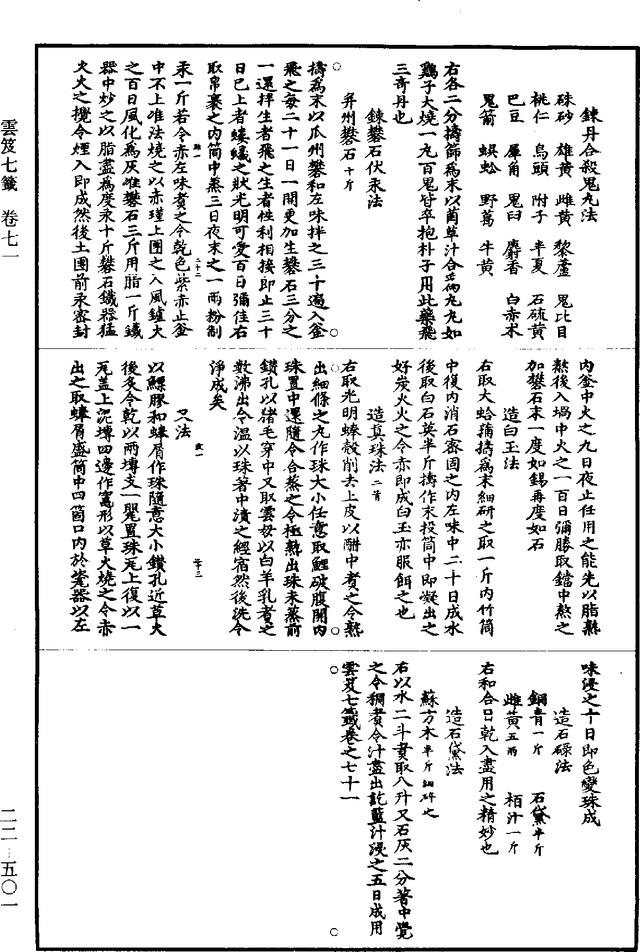 雲笈七籤　卷七一
二二―五〇一
鍊丹合殺鬼丸法
硃砂　雄黃　雌黃　藜蘆　鬼比目
桃仁　烏頭　附子　半夏　石硫黃
巴豆　犀角　鬼臼　麝香　白赤朮
鬼箭　蜈蚣　野葛　牛黃
右各二分擣篩為末以菌草汁合為丸丸如
鷄子大燒一丸百鬼皆卒抱朴子用此藥飛
三奇丹也
鍊礬石伏汞法
并州礬石十斤
擣為末以瓜州礬和左味拌之三十遍入釜
飛之每二十一日一開更加生礬石三分之
一還拌生者飛之生者性利相接即止三十
日已上者螻蟻之狀光明可愛百日彌佳右
取帛裹之內筒中蒸三日夜末之一兩粉制
汞一斤若令赤左味煑之令乾色紫赤止釜
中不上唯法燒之以赤瑾上團之入風鑪火
之百日風化為灰唯礬石三斤用脂一斤鐵
器中炒之以脂盡為度汞十斤礬石鐵器猛
火火之攪令煙入即成然後土團前汞密封
內釜中火之九日夜止任用之能先以脂熟
熬後入堝中火之一百日彌勝取鐺中熬之
加礬石末一度如錫再度如石
造白玉法
右取大蛤蒲擣為末細研之取一斤內竹筒
中復內消石密固之內左味中二十日成水
後取白石英半斤擣作末投筒中即凝出之
好炭火火之令赤即成白玉亦服餌之也
造真珠法二首
右取光明蜯殼削去上皮以酣中煑之令熟
出細條之丸作珠大小任意取鯉破腹開內
珠置中還隨令合蒸之令極熟出珠未蒸前
鑽孔以猪毛穿中又取雲母以白羊乳煑之
數沸出令溫以珠著中漬之經宿然後洗令
淨成矣
又法
以鰾膠和蜯屑作珠隨意大小鑽孔近草火
後炙令乾以兩塼支一甖置珠瓦上復以一
瓦蓋上泥塼四邊作窯形以草火燒之令赤
出之取蜯屑盛筒中四箇口內於瓷器以左
味浸之十日即色變珠成
造石碌法
銅青一斤　石黛半斤
雌黃五兩　栢汁一斤
右和合日乾入盡用之精妙也
造石黛法
蘇方木半斤細碎之
右以水二斗煑取八升又石灰二分著中覺
之令稠煑令汁盡出訖藍汁浸之五日成用
雲笈七籤卷之七十一